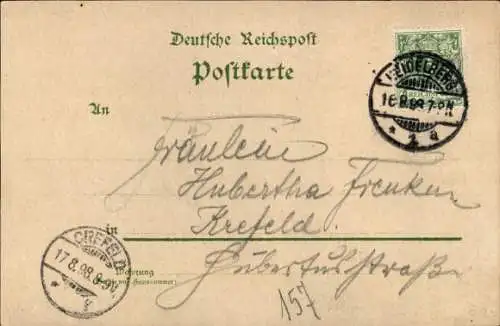 Deutsche Reichspost
Postkarte
HEIDELBERG
16.8.98.7-8N
* 2. a
An
Fräulein
Hubertha Frenken
in Krefeld.
CREFELD
17.8.98.8-9V
* f
Wohnung
Hubertusstraße
157